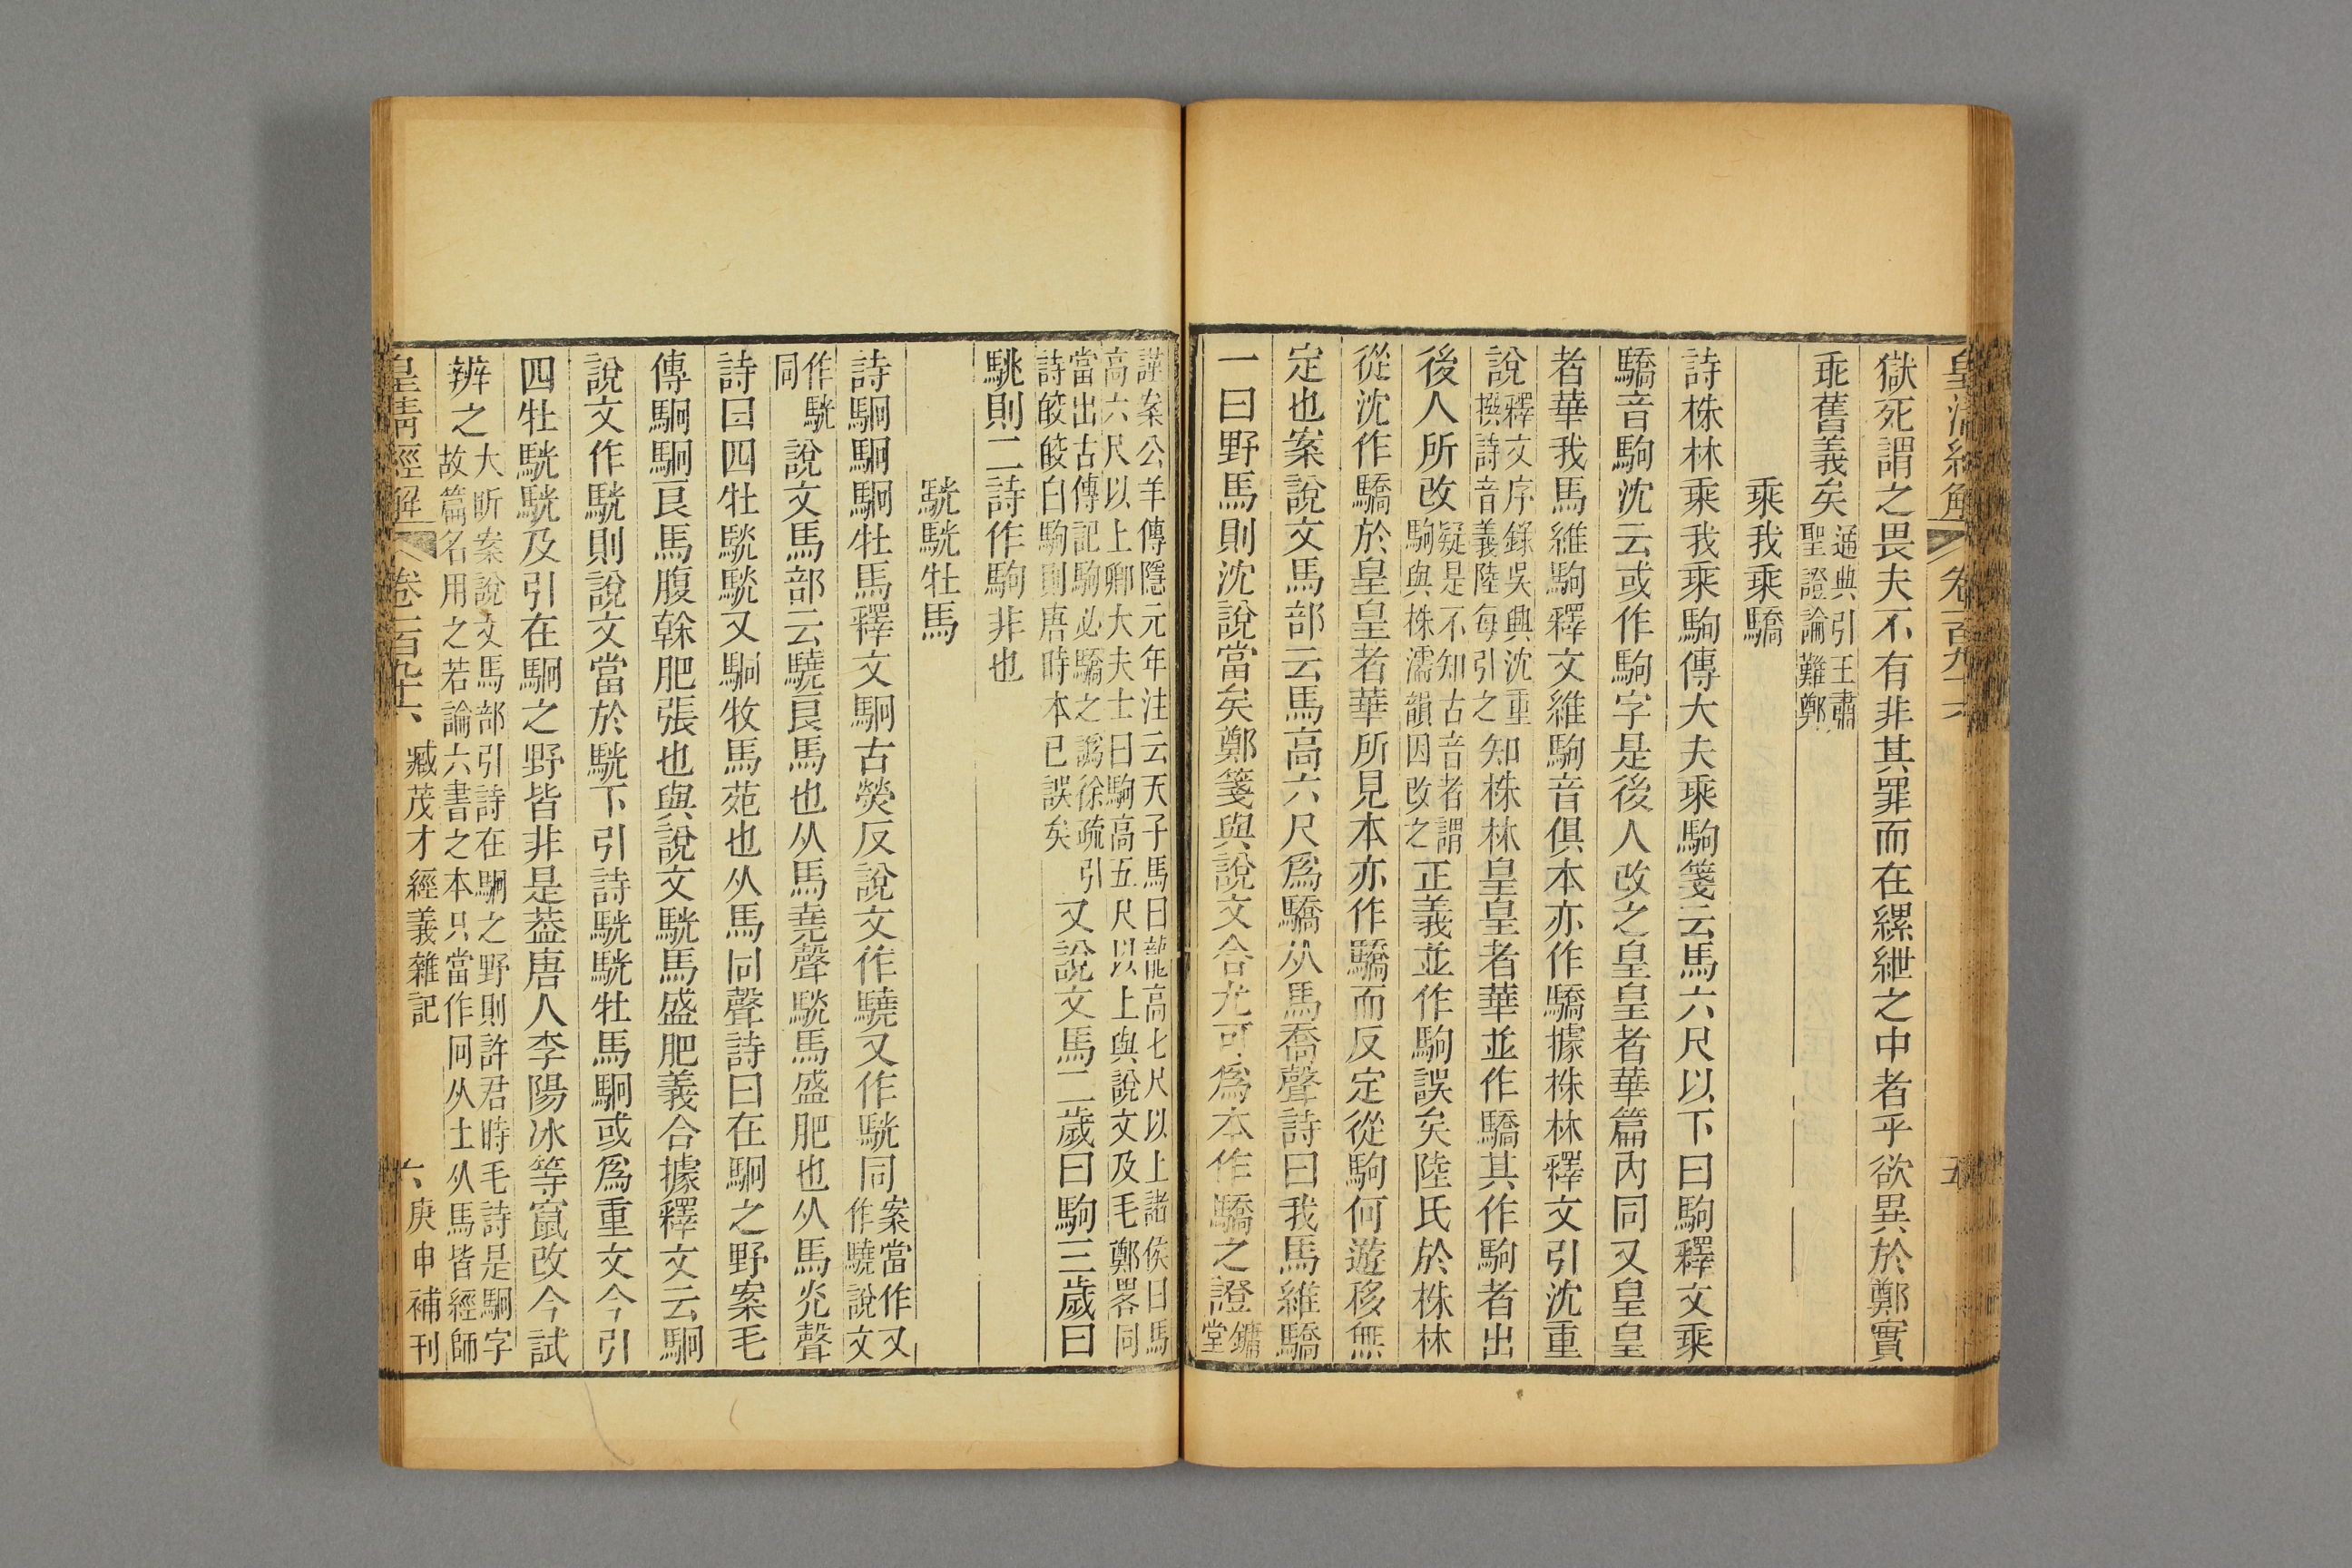 皇清經解 卷一百九十六 五
獄死謂之畏夫不有非其罪而在縲紲之中者乎欲異於鄭實
乖舊義矣通典引王肅聖證論難鄭
乘我乘驕
詩株林乘我乘駒傳大夫乘駒箋云馬六尺以下曰駒釋文乘
驕音駒沈云或作駒字是後人改之皇皇者華篇內同又皇皇
者華我馬維駒釋文維駒音俱本亦作驕據株林釋文引沈重
說釋文序錄吳興沈重撰詩音義陸每引之知株林皇皇者華並作驕其作駒者出
後人所改疑是不知古音者謂駒與株濡韻因改之正義並作駒誤矣陸氏於株林
從沈作驕於皇皇者華所見本亦作驕而反定從駒何遊移無
定也案說文馬部云馬高六尺爲驕从馬喬聲詩曰我馬維驕
一曰野馬則沈說當矣鄭箋與說文合尤可爲本作驕之證鏞堂
謹案公羊傳隱元年注云天子馬曰龍高七尺以上諸侯曰馬
高六尺以上卿大夫士曰駒高五尺以上與說文及毛鄭畧同
當出古傳記駒必驕之譌徐疏引
詩皎皎白駒則唐時本已誤矣
又說文馬二歲曰駒三歲曰
駣則二詩作駒非也
駫駫牡馬
詩駉駉牡馬釋文駉古熒反說文作驍又作駫同案當作又作驍說文
作駫同說文馬部云驍良馬也从馬堯聲駫馬盛肥也从馬光聲
詩曰四牡駫駫又駉牧馬苑也从馬冋聲詩曰在駉之野案毛
傳駉駉良馬腹榦肥張也與說文駫馬盛肥義合據釋文云駉
說文作駫則說文當於駫下引詩駫駫牡馬駉或爲重文今引
四牡駫駫及引在駉之野皆非是葢唐人李陽冰等竄改今試
辨之大昕案說文馬部引詩在駉之野則許君時毛詩是駉字
故篇名用之若論六書之本只當作冋从土从馬皆經師
皇清經解 卷一百九十六 臧茂才經義雜記 六 庚申補刊